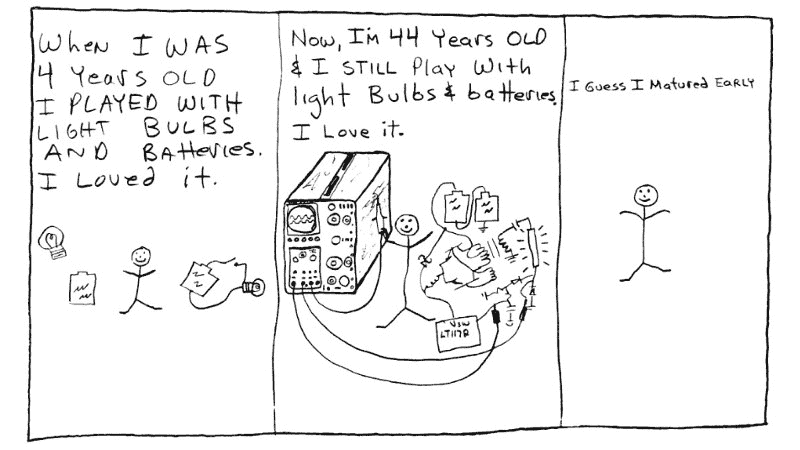 When I WAS
4 Years OLD
I PLAYED WITH
LIGHT BULBS
AND BAtteries.
I Loved it.
Now, I'm 44 Years OLD
& I STILL Play With
light Bulbs & batteries.
I Love it.
I Guess I Matured EARLY